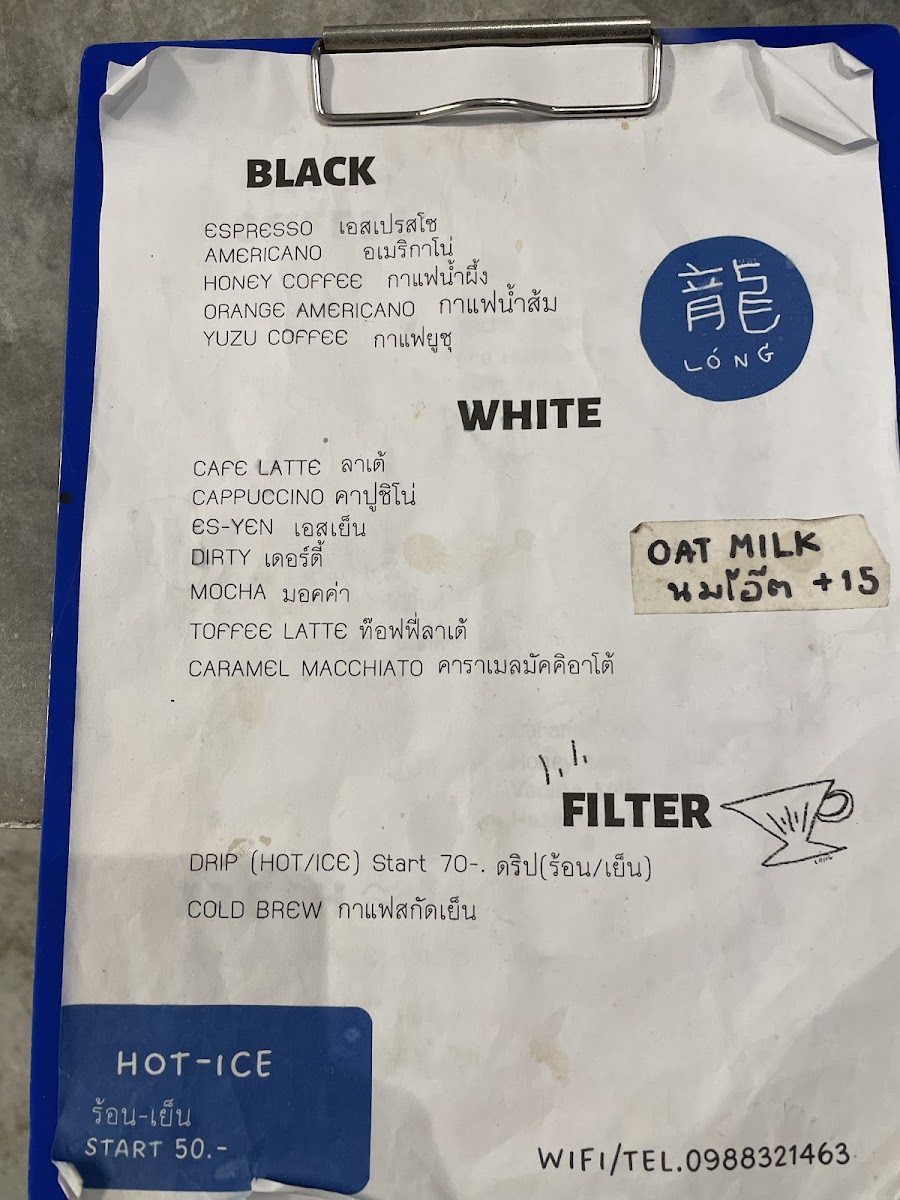 BLACK
ESPRESSO เอสเปรสโซ
AMERICANO อเมริกาโน่
HONEY COFFEE กาแฟน้ำผึ้ง
ORANGE AMERICANO กาแฟน้ำส้ม
YUZU COFFEE กาแฟยูซุ
龍
LÓNG
WHITE
CAFE LATTE ลาเต้
CAPPUCCINO คาปูชิโน่
ES-YEN เอสเย็น
DIRTY เดอร์ตี้
MOCHA มอคค่า
TOFFEE LATTE ท๊อฟฟี่ลาเต้
CARAMEL MACCHIATO คาราเมลมัคคิอาโต้
OAT MILK
นมโอ๊ต +15
FILTER
LONG
DRIP (HOT/ICE) Start 70-. ดริป(ร้อน/เย็น)
COLD BREW กาแฟสกัดเย็น
HOT-ICE
ร้อน-เย็น
START 50.-
WIFI/TEL.0988321463